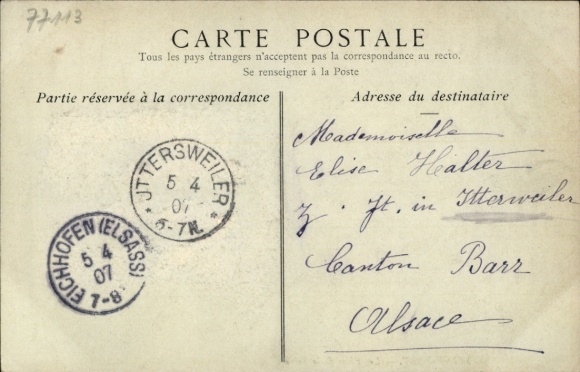 77113
CARTE POSTALE
Tous les pays étrangers n'acceptent pas la correspondance au recto.
Se renseigner à la Poste
Partie réservée à la correspondance
Adresse du destinataire
Mademoiselle
Elise Halter
z. Zt. in Itterweiler
Canton Barr
Alsace
JTTERSWEILER
5 4
07
6-7N.
EICHHOFEN (ELSASS)
5 4
07
7-8